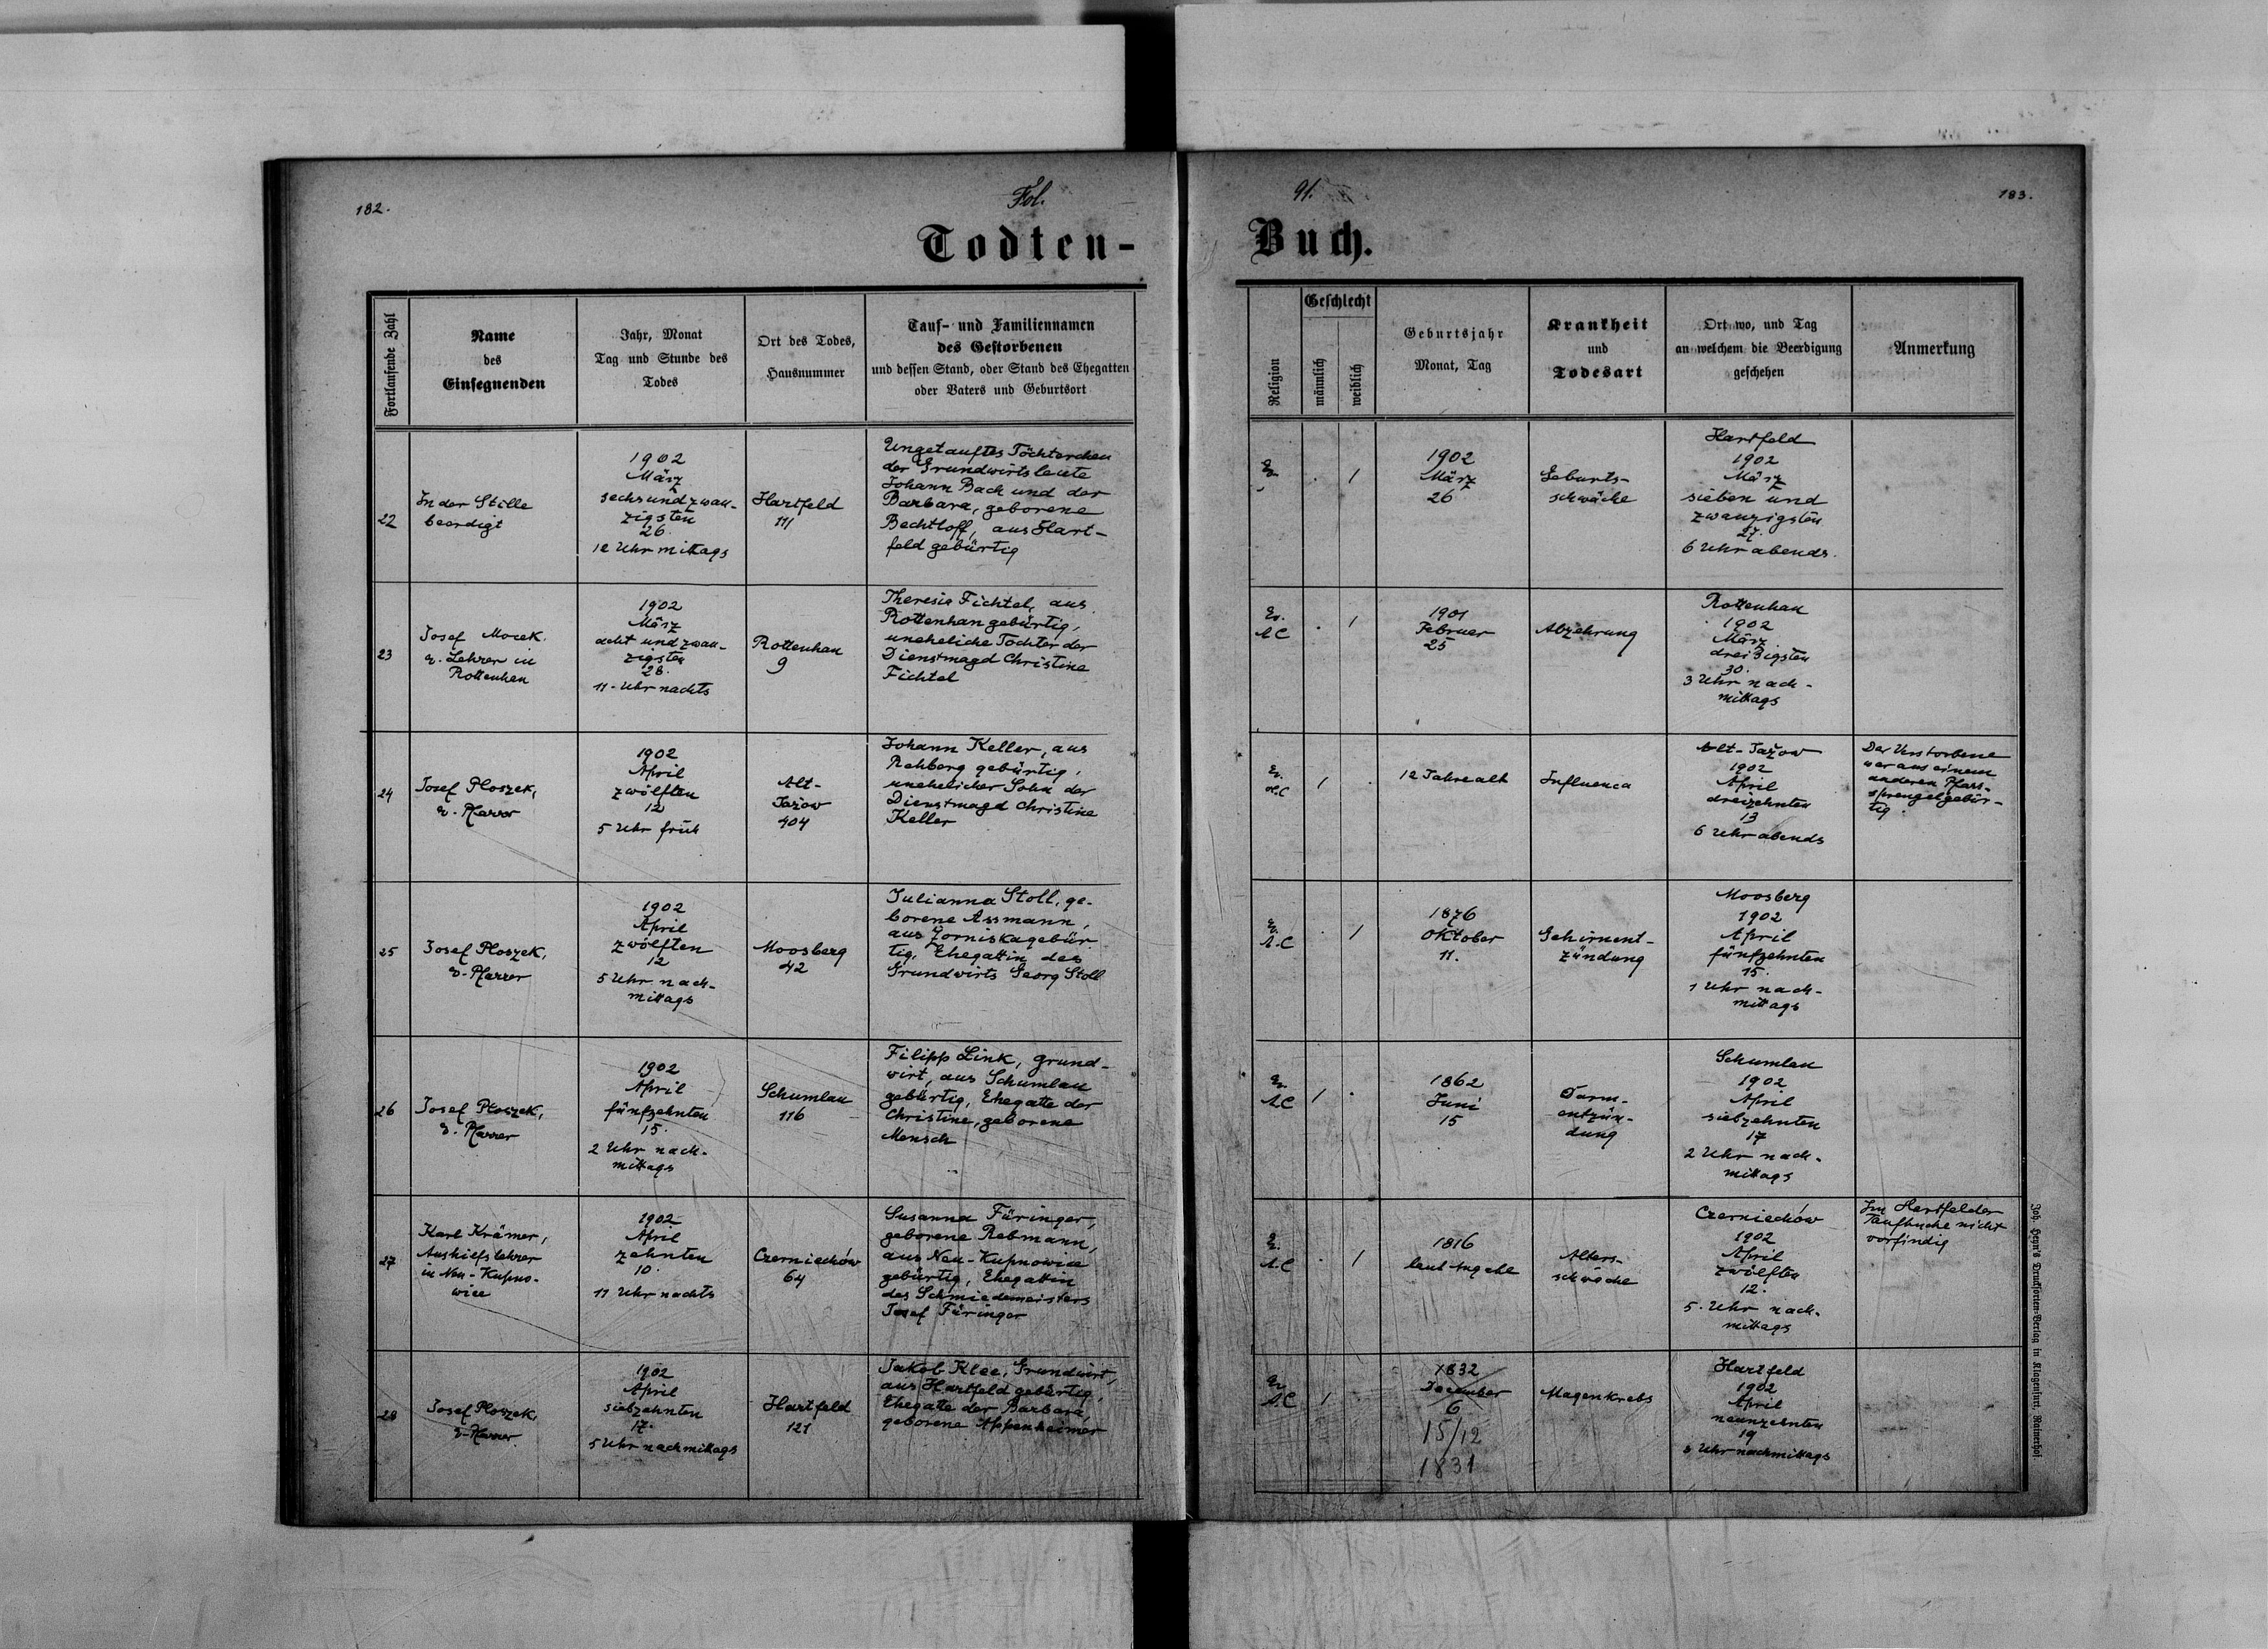 182.
Fol.
91.
183.
Todten-
Buch.
Fortlaufende Zahl
Name
des
Einsegnenden
Jahr, Monat
Tag und Stunde des
Todes
Ort des Todes,
Hausnummer
Tauf- und Familiennamen
des Gestorbenen
und dessen Stand, oder Stand des Ehegatten
oder Vaters und Geburtsort
Religion
Geschlecht
männlich
weiblich
Geburtsjahr
Monat, Tag
Krankheit
und
Todesart
Ort wo, und Tag
an welchem die Beerdigung
geschehen
Anmerkung
22
In der Stille
beerdigt
1902
März
sechsundzwan-
zigsten
26.
12 Uhr mittags
Hartfeld
111
Ungetauftes Töchterchen
der Grundwirtsleute
Johann Bach und der
Barbara, geborene
Bechtloff, aus Hart-
feld gebürtig
Ev.
. 1
1902
März
26
Geburts-
schwäche
Hartfeld
1902
März
sieben und
zwanzigsten
27.
6 Uhr abends.
23
Josef Mocek.
ev. Lehrer in
Rottenhan
1902
März
acht und zwan-
zigsten
28.
11 - Uhr nachts
Rottenhan
9
Theresia Fichtel, aus
Rottenhan gebürtig,
uneheliche Tochter der
Dienstmagd Christine
Fichtel
Ev.
A.C
. 1
1901
Februer
25
Abzehrung
Rottenhan
1902
März
dreißigsten
30.
3 Uhr nach-
mittags
24
Josef Ploszek,
ev. Pfarrer
1902
April
zwölften
12
5 Uhr früh
Alt-
Jažow
404
Johann Keller, aus
Rehberg gebürtig,
unehelicher Sohn der
Dienstmagd Christine
Keller
Ev.
A.C
1 .
12 Jahre alt
Influenca
Alt-Jažow
1902
April
dreizehnten
13
6 Uhr abends
Der Verstorbene
war aus einem
anderen Pfarr-
sprengel gebür-
tig
25
Josef Ploszek,
ev. Pfarrer
1902
April
zwölften
12
5 Uhr nach-
mittags
Moosberg
42
Julianna Stoll, ge-
borene Assmann,
aus Zorniska gebür
tig, Ehegattin des
Grundwirts Georg Stoll
Ev.
A.C
. 1
1876
Oktober
11.
Gehirnent-
zündung
Moosberg
1902
April
fünfzehnten
15.
1 Uhr nach-
mittags
26
Josef Ploszek,
ev. Pfarrer
1902
April
fünfzehnten
15.
2 Uhr nach-
mittags
Schumlau
116
Filipp Link, Grund-
wirt, aus Schumlau
gebürtig, Ehegatte der
Christine, geborene
Mensch
Ev.
A.C
1 .
1862
Juni
15
Darm-
entzün-
dung
Schumlau
1902
April
siebzehnten
17
2 Uhr nach-
mittags
27
Karl Krämer,
Aushilfslehrer
in Neu-Kupno-
wice
1902
April
zehnten
10.
11 Uhr nachts
Czerniechów
64
Susanna Füringer,
geborene Rebmann,
aus Neu-Kupnowice
gebürtig, Ehegattin
des Schmiedemeisters
Josef Füringer
Ev.
A.C
. 1
1816
laut Angabe
Alters-
schwäche
Czerniechów
1902
April
zwölften
12.
5. Uhr nach-
mittags
Im Hartfelder
Taufbuche nicht
vorfindig
28
Josef Ploszek,
ev. Pfarrer
1902
April
siebzehnten
17.
5 Uhr nachmittags
Hartfeld
121
Jakob Klee, Grundwirt,
aus Hartfeld gebürtig,
Ehegatte der Barbara,
geborene Appenheimer
Ev
A.C
1 .
1832
December
6
15/12
1831
Magenkrebs
Hartfeld
1902
April
neunzehnten
19
Uhr nachmittags
Joh. Heyn's Drucksorten-Verlag in Klagenfurt, Rainerhof